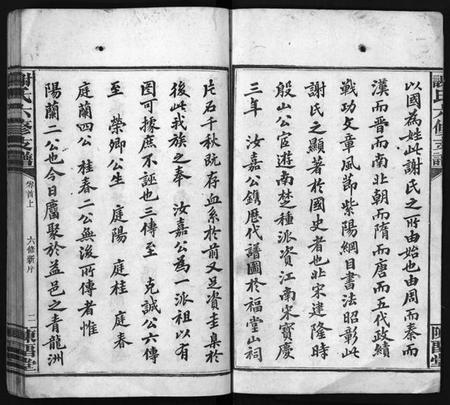 以國為姓此謝氏之所由始也由周而秦而
漢而晋而南北朝而隋而唐而五代政績
戰功文章風節紫陽綱目書法昭彰此
謝氏之顯著於國史者也北宋建隆時
殷山公宦遊南楚種派資江南宋寳慶
三年 汝嘉公鐫歷代譜圖於福堂山祠
片石千秋既存血系於前又足資查集於
後此我族之奉 汝嘉公為一派祖以有
圖可據庶不誣也三傳至 克誠公六傳
至 榮卿公生 庭陽 庭桂 庭春
庭蘭四公 桂春二公無後所傳者惟
陽蘭二公也今日鷹聚於益邑之青龍洲
謝氏六修支譜
卷首上
六修新片
二
陳留堂